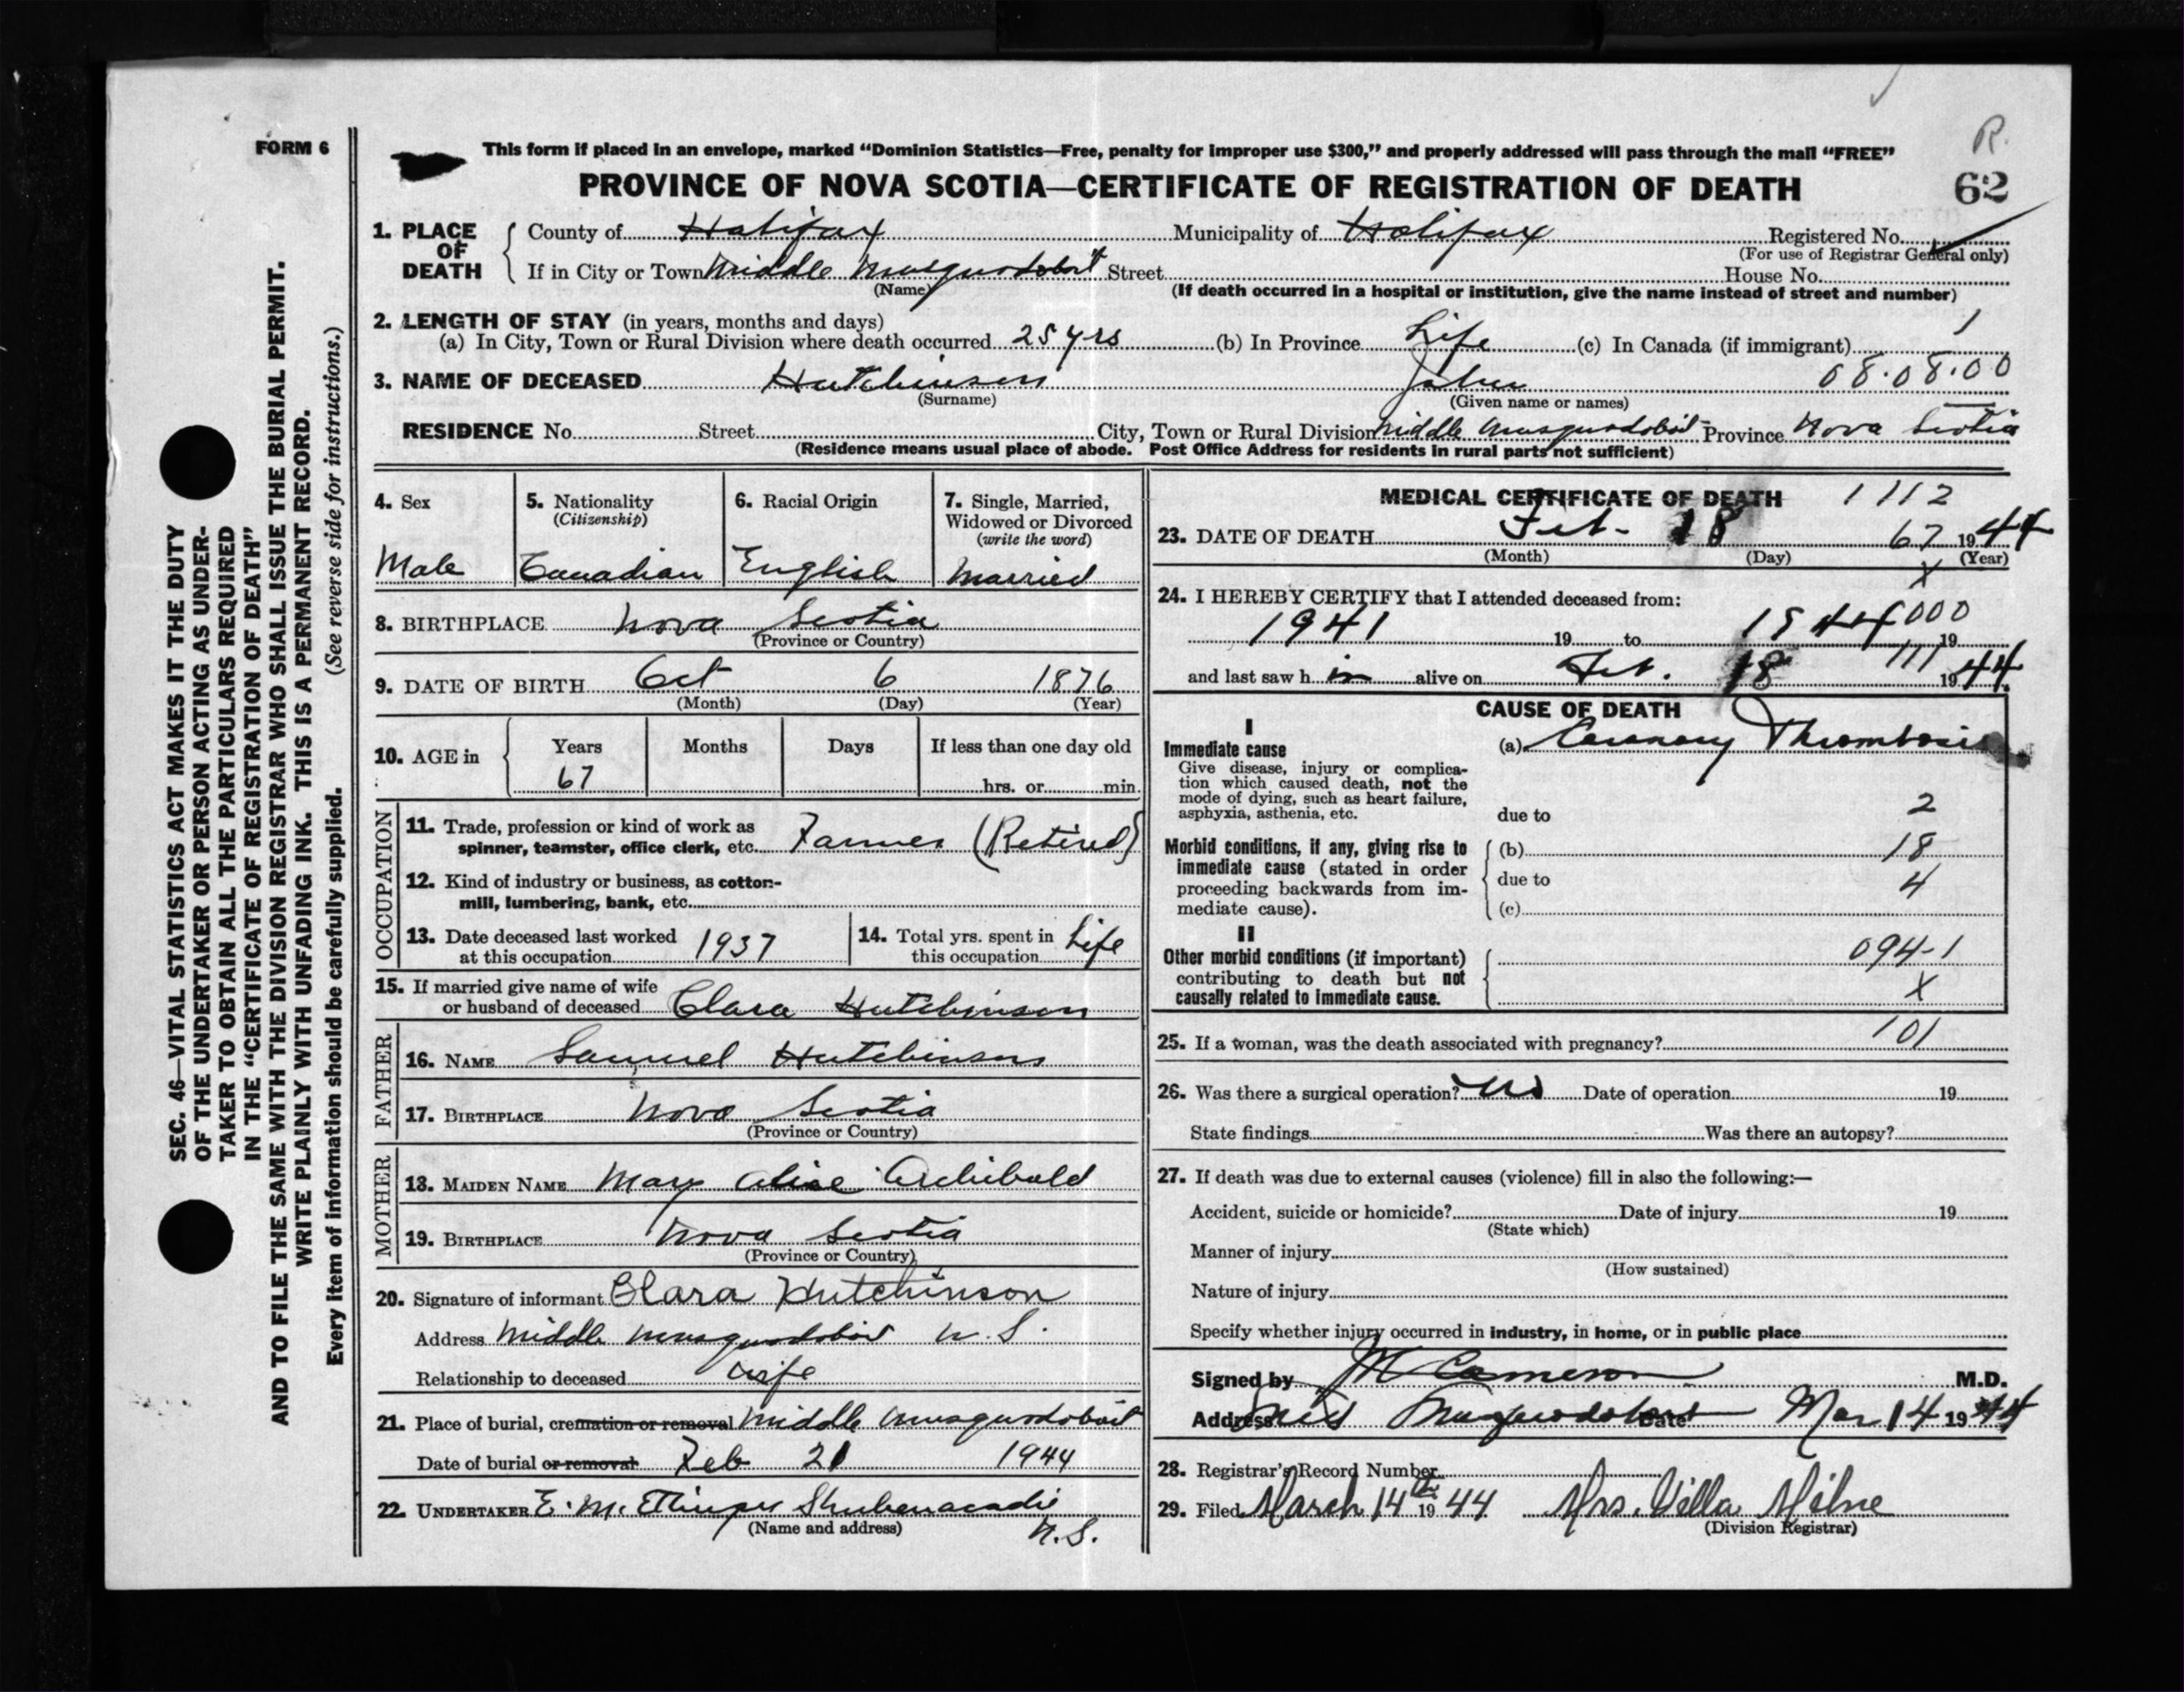 R.
FORM 6
This form if placed in an envelope, marked “Dominion Statistics—Free, penalty for improper use $300,” and properly addressed will pass through the mail “FREE”
PROVINCE OF NOVA SCOTIA—CERTIFICATE OF REGISTRATION OF DEATH 62
1. PLACE OF DEATH County of Halifax Municipality of Halifax Registered No.
(For use of Registrar General only)
If in City or Town Middle Musquodoboit Street House No.
(Name) (If death occurred in a hospital or institution, give the name instead of street and number)
2. LENGTH OF STAY (in years, months and days) 1
(a) In City, Town or Rural Division where death occurred 25 yrs (b) In Province Life (c) In Canada (if immigrant)
3. NAME OF DECEASED Hutchinson John 08.08.00
(Surname) (Given name or names)
RESIDENCE No. Street City, Town or Rural Division Middle Musquodoboit Province Nova Scotia
(Residence means usual place of abode. Post Office Address for residents in rural parts not sufficient)
4. Sex 5. Nationality (Citizenship) 6. Racial Origin 7. Single, Married, Widowed or Divorced (write the word)
Male Canadian English Married
8. BIRTHPLACE Nova Scotia
(Province or Country)
9. DATE OF BIRTH Oct 6 1876
(Month) (Day) (Year)
10. AGE in Years Months Days If less than one day old
67 hrs. or min.
OCCUPATION
11. Trade, profession or kind of work as
spinner, teamster, office clerk, etc. Farmer (Retired)
12. Kind of industry or business, as cotton-
mill, lumbering, bank, etc.
13. Date deceased last worked at this occupation 1937 14. Total yrs. spent in this occupation Life
15. If married give name of wife
or husband of deceased Clara Hutchinson
FATHER
16. NAME Samuel Hutchinson
17. BIRTHPLACE Nova Scotia
(Province or Country)
MOTHER
18. MAIDEN NAME Mary Alice Archibald
19. BIRTHPLACE Nova Scotia
(Province or Country)
20. Signature of informant Clara Hutchinson
Address Middle Musquodoboit N.S.
Relationship to deceased wife
21. Place of burial, cremation or removal Middle Musquodoboit
Date of burial or removal Feb 21 1944
22. UNDERTAKER E. M. Ettinger Shubenacadie
(Name and address) N.S.
MEDICAL CERTIFICATE OF DEATH 1112
23. DATE OF DEATH Feb. 18 67 1944
(Month) (Day) (Year)
X
24. I HEREBY CERTIFY that I attended deceased from:
000
1941 19 to 1944 19
111
and last saw h im alive on Feb. 18 1944
CAUSE OF DEATH
I
Immediate cause (a) Coronary Thrombosis
Give disease, injury or complica-
tion which caused death, not the
mode of dying, such as heart failure,
asphyxia, asthenia, etc. due to 2
Morbid conditions, if any, giving rise to (b) 18
immediate cause (stated in order
proceeding backwards from im- due to 4
mediate cause). (c)
II
Other morbid conditions (if important) 094-1
contributing to death but not X
causally related to immediate cause.
25. If a woman, was the death associated with pregnancy? 101
26. Was there a surgical operation? No Date of operation 19
State findings Was there an autopsy?
27. If death was due to external causes (violence) fill in also the following:—
Accident, suicide or homicide? Date of injury 19
(State which)
Manner of injury
(How sustained)
Nature of injury
Specify whether injury occurred in industry, in home, or in public place
Signed by M Cameron M.D.
Address Mid Musquodoboit Date Mar 14 1944
28. Registrar's Record Number
29. Filed March 14th 1944 Mrs. Villa Milne
(Division Registrar)
SEC. 46—VITAL STATISTICS ACT MAKES IT THE DUTY
OF THE UNDERTAKER OR PERSON ACTING AS UNDER-
TAKER TO OBTAIN ALL THE PARTICULARS REQUIRED
IN THE “CERTIFICATE OF REGISTRATION OF DEATH”
AND TO FILE THE SAME WITH THE DIVISION REGISTRAR WHO SHALL ISSUE THE BURIAL PERMIT.
WRITE PLAINLY WITH UNFADING INK. THIS IS A PERMANENT RECORD.
Every item of information should be carefully supplied. (See reverse side for instructions.)